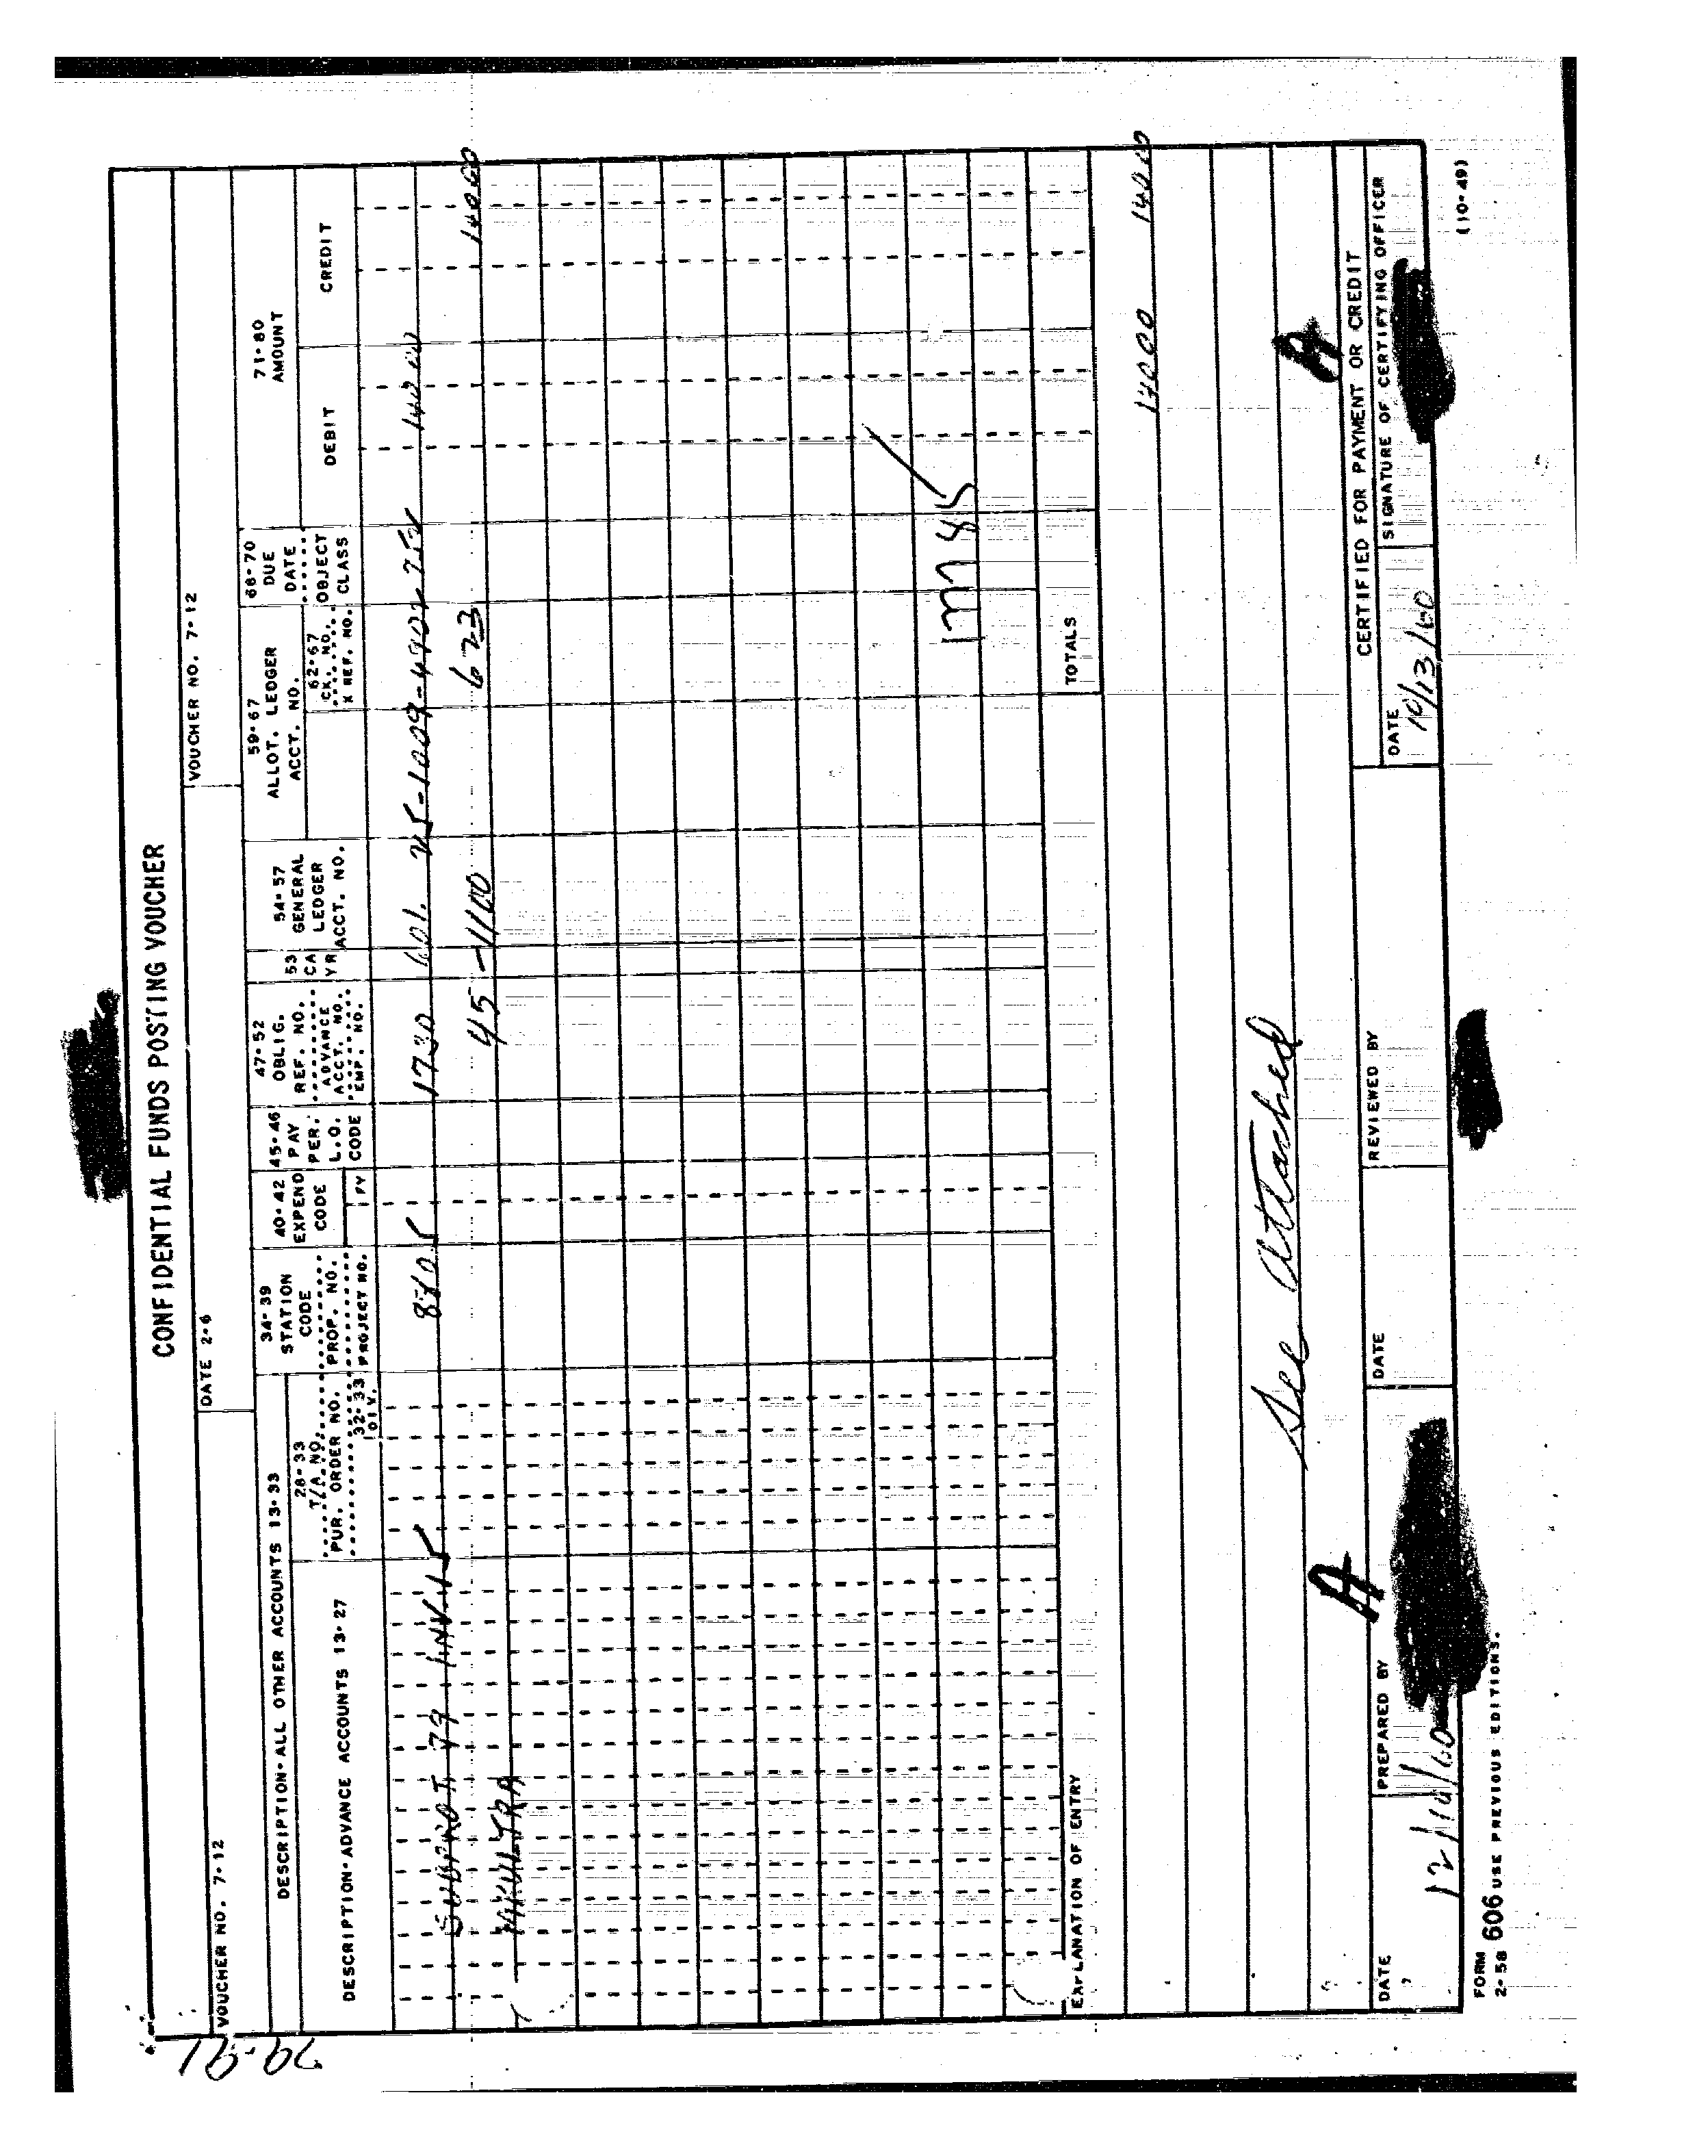 CONFIDENTIAL FUNDS POSTING VOUCHER
VOUCHER NO. 7-12
DATE 2-6
VOUCHER NO. 7-12
DESCRIPTION-ALL OTHER ACCOUNTS 13-33
DESCRIPTION-ADVANCE ACCOUNTS 13-27
28-33
T/A NO.
PUR. ORDER NO.
32-33
DIV.
34-39
STATION
CODE
PROP. NO.
PROJECT NO.
40-42
EXPEND
CODE
FY
45-46
PAY
PER.
L.O.
CODE
47-52
OBLIG.
REF. NO.
ADVANCE
ACCT. NO.
EMP. NO.
53
CA
YR
54-57
GENERAL
LEDGER
ACCT. NO.
59-67
ALLOT. LEDGER
ACCT. NO.
62-67
CK. NO.
X REF. NO.
68-70
DUE
DATE
OBJECT
CLASS
71-80
AMOUNT
DEBIT
CREDIT
SUBPROJ 79 INV. 15
1730 601.
1400
MKULTRA
45 1100 623 1400
TOTALS
EXPLANATION OF ENTRY
1400 1400
See attached
A
A
CERTIFIED FOR PAYMENT OR CREDIT
DATE
PREPARED BY
DATE
REVIEWED BY
DATE
SIGNATURE OF CERTIFYING OFFICER
10/13/60
FORM
2-58 606 USE PREVIOUS EDITIONS.
(10-49)
79-91